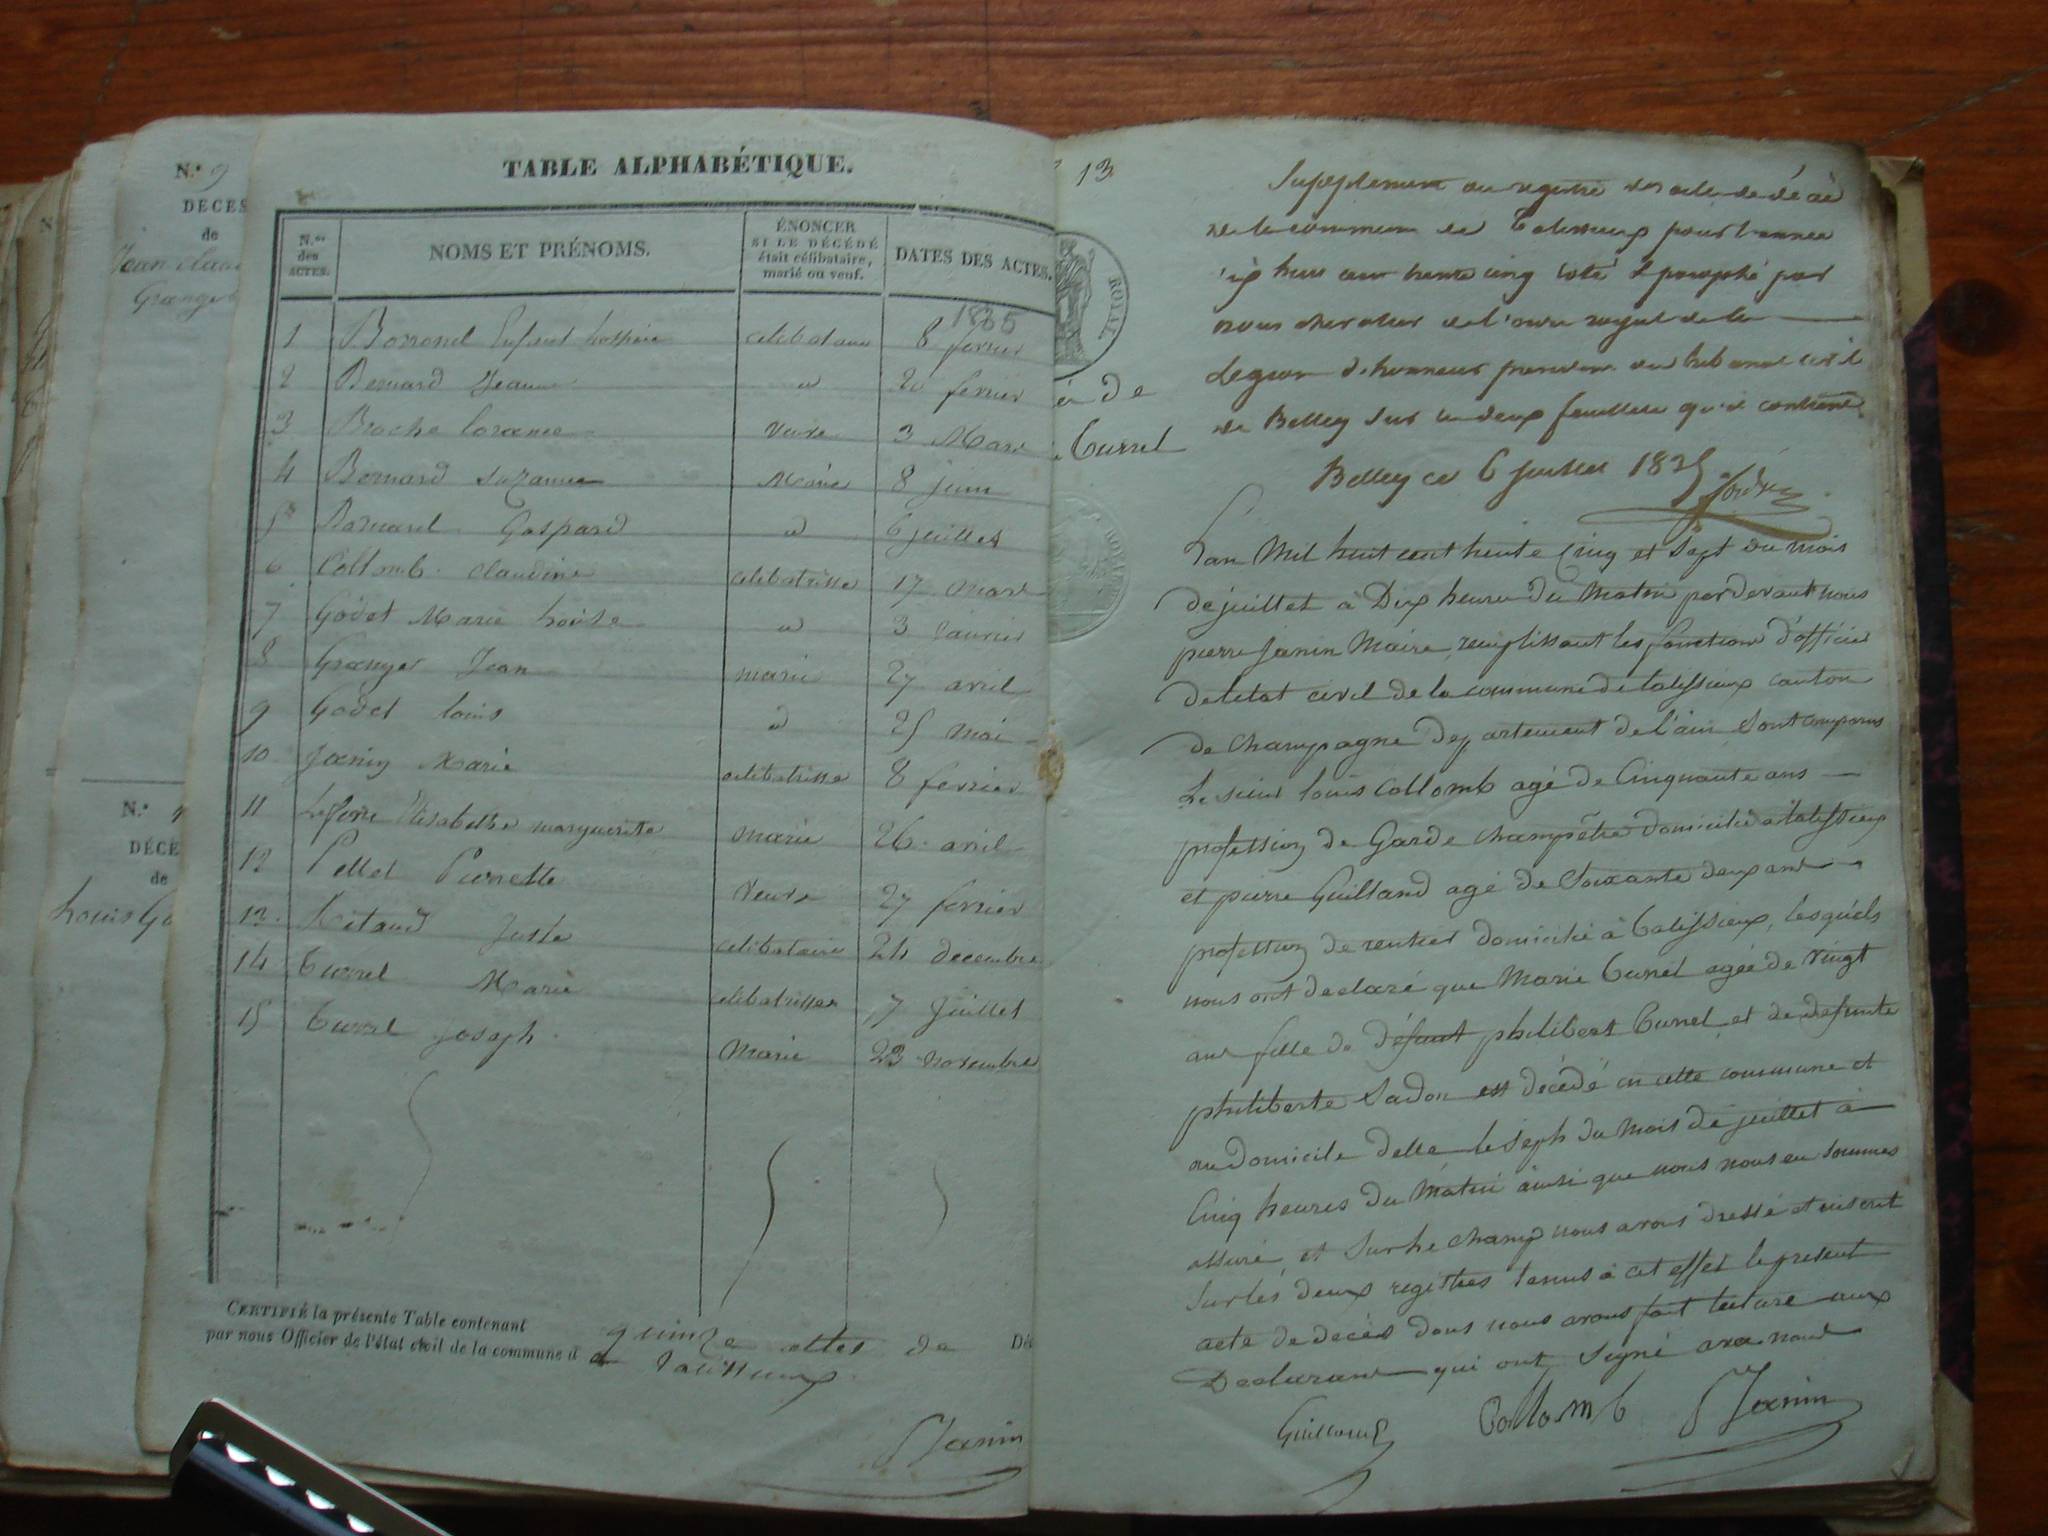 N.º 9
DÉCES
de
Jean claud
Granger
N.º
DÉCÈ
de
Louis Go
TABLE ALPHABÉTIQUE.
N.os des ACTES.
NOMS ET PRÉNOMS.
ÉNONCER
SI LE DÉCÉDÉ
était célibataire,
marié ou veuf.
DATES DES ACTES.
1835
1 Enfant hospice celibataire 8 fevrier
2 Bernard Jeanne d 20 fevrier
3 Broche veuve 3 Mars
4 Bernard Suzanne Mariée 8 juin
5 Bernard Gaspard d 6 juillet
6 Collomb Claudine celibatrisse 17 mars
7 Godet Marie Louise d 3 Janvier
8 Granger Jean marié 27 avril
9 Godet louis d 25 mai
10 Janin Marie celibatrisse 8 fevrier
11 Elisabethe marguerite mariée 26 avril
12 Pellet Pierrette veuve 27 fevrier
13 Juste celibataire 24 decembre
14 Curnel Marie celibatrisse 7 Juillet
15 Curnel Joseph Marié 23 novembre
CERTIFIÉ la présente Table contenant quinze actes de Dé
par nous Officier de l'état civil de la commune d e talissieux
P Janin
13
ROYAL
de
Curnel
Supplement au registre des actes de décè
de la commune de Talissieux pour l'année
dix huit cent trente cinq coté & paraphé par
nous chevalier de l'ordre royal de la
Legion d'honneur president du tribunal civil
de Belley sur les deux feuillets qu'il contient
Belley ce 6 Juillet 1835
L'an Mil huit cent trente Cinq et Sept du mois
de juillet à Dix heures du Matin par devant nous
pierre Janin Maire remplissant les fonctions d'officier
de l'etat civil de la commune de talissieux canton
de champagne departement de l'ain Sont comparus
Le sieur louis Collomb agé de Cinquante ans
profession de Garde champêtre domicilié à talissieux
et pierre Guilland agé de Soixante deux ans
profession de rentier domicilié à talissieux, lesquels
nous ont declaré que Marie Curnel agée de vingt
ans fille de défunt philibert Curnel et de defunte
philiberte Sadon est décédé en cette commune et
au domicile delle le Sept du mois de juillet à
Cinq heures du Matin ainsi que nous nous en sommes
assuré, et Sur le champ nous avons dressé et inscrit
sur les deux registres tenus à cet effet le present
acte de decès dont nous avons fait lecture aux
Declarant qui ont Signé avec nous
Guilland Collomb P Janin